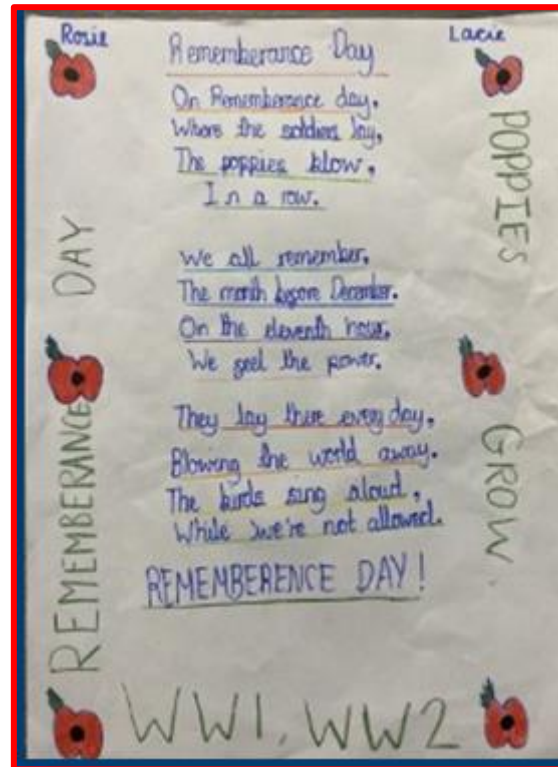 Rosie
Lacie
Rememberance Day
On Rememberance day,
Where the soldiers lay,
The poppies blow,
In a row.
We all remember,
The month before December.
On the eleventh hour,
We feel the power.
They lay there every day,
Blowing the world away.
The birds sing aloud,
While we're not allowed.
REMEMBERENCE DAY!
REMEMBERANCE DAY
POPPIES GROW
WW1, WW2